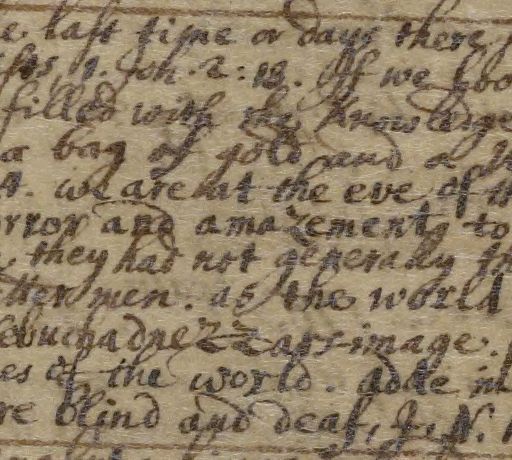 last time or days there
1. Joh. 2: 18. If we loo
filled with the Knowledge
a bag of gold and a
4. we are but at the eve of th
orror and amazement, to
they had not generally th
etter men. as the world
ebuchadnezzars image.
es of the world. adde
re blind and deaf, J. N.